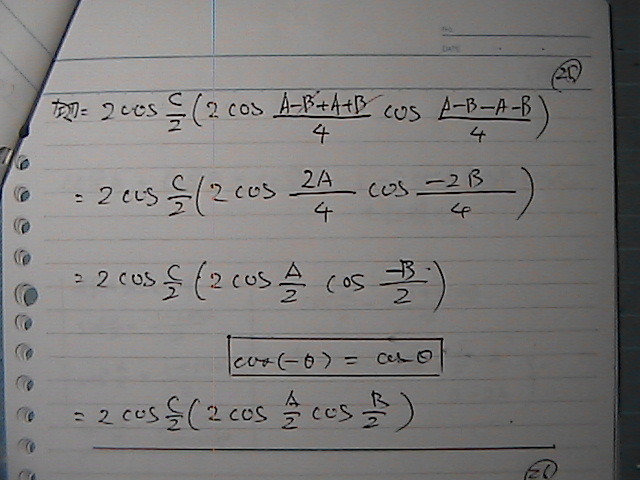 NO.
DATE
(25)
左辺 = 2 cos C/2 (2 cos (A-B+A+B)/4 cos (A-B-A-B)/4)
= 2 cos C/2 (2 cos 2A/4 cos -2B/4)
= 2 cos C/2 (2 cos A/2 cos -B/2)
cos(-θ) = cos θ
= 2 cos C/2 (2 cos A/2 cos B/2)